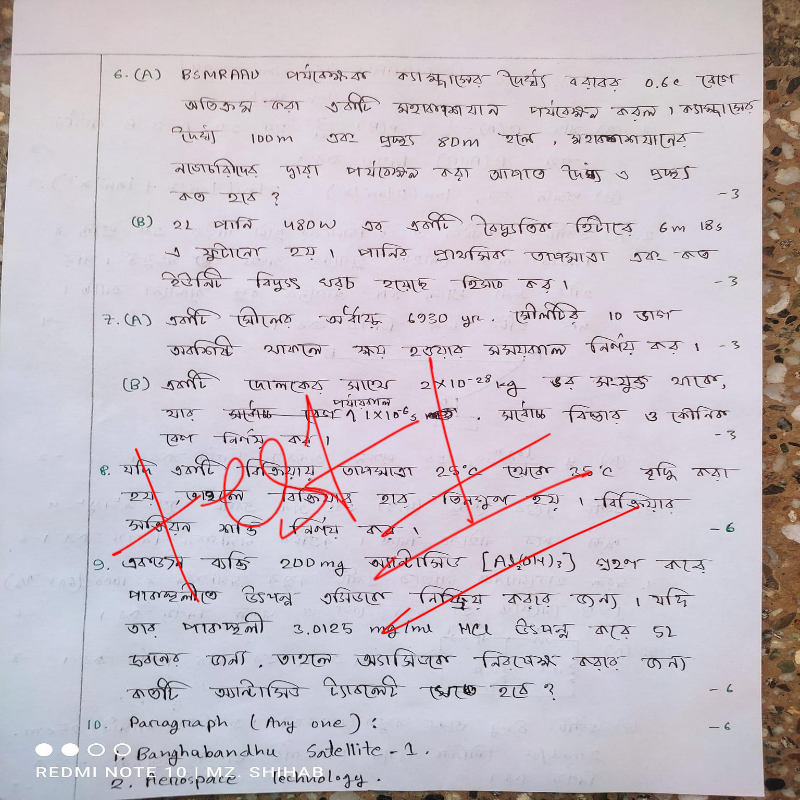 6. (A) BSMRAAU পর্যবেক্ষক ক্যাম্পাসের দৈর্ঘ্য বরাবর 0.6c বেগে
অতিক্রম করা একটি মহাকাশযান পর্যবেক্ষন করল। ক্যাম্পাসের
দৈর্ঘ্য 100m এবং প্রস্থ 80m হলে, মহাকাশযানের
নভোচারীদের দ্বারা পর্যবেক্ষন করা আপাত দৈর্ঘ্য ও প্রস্থ
কত হবে ? -3
(B) 2L পানি 480W এর একটি বৈদ্যুতিক হিটারে 6m 18s
এ ফুটানো হয়। পানির প্রাথমিক তাপমাত্রা এবং কত
ইউনিট বিদ্যুৎ খরচ হয়েছে হিসাব কর। -3
7. (A) একটি মৌলের অর্ধায়ু 6930 yr. মৌলটির 10 ভাগ
অবশিষ্ট থাকলে ক্ষয় হওয়ার সময়কাল নির্ণয় কর। -3
(B) একটি দোলকের সাথে 2×10-28 kg ভর সংযুক্ত থাকে,
পর্যায়কাল
যার সর্বোচ্চ বেগ 1×10-6s . সর্বোচ্চ বিস্তার ও কৌনিক
বেগ নির্ণয় কর। -3
8. যদি একটি বিক্রিয়ায় তাপমাত্রা 25°C থেকে 35°C বৃদ্ধি করা
হয়, তাহলে বিক্রিয়ার হার তিনগুণ হয়। বিক্রিয়ার
সক্রিয়ন শক্তি নির্ণয় কর। -6
9. একজন ব্যক্তি 200mg অ্যান্টাসিড [Al(OH)3] গ্রহণ করে
পাকস্থলীতে উৎপন্ন এসিডকে নিষ্ক্রিয় করার জন্য। যদি
তার পাকস্থলী 3.0125 mg/mL HCl উৎপন্ন করে 5L
দ্রবনের জন্য, তাহলে অ্যাসিডকে নিরপেক্ষ করার জন্য
কতটি অ্যান্টাসিড ট্যাবলেট খেতে হবে ? -6
10. Paragraph (Any one) : -6
1. Banghabandhu Satellite-1.
REDMI NOTE 10 | MZ. SHIHAB
2. Aerospace Technology.
Test